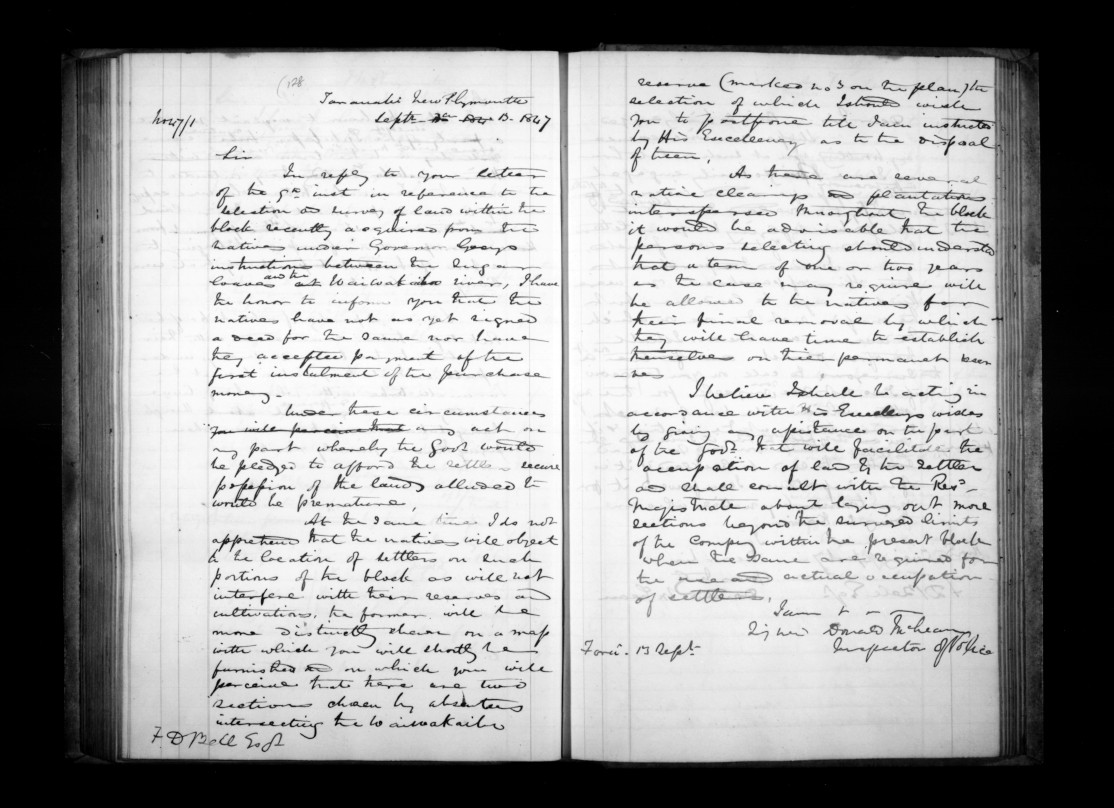 128
Taranaki New Plymouth
No 47/1
Septr 13. 1847
Sir
In reply to your letter
of the 9th inst in reference to the
selection and survey of land within the
block recently acquired from the
natives under Governor Greys
instructions between the Sugar
loaves and the Waiwakaiho river, I have
the honor to inform you that the
natives have not as yet signed
a deed for the same nor have
they accepted payment of the
first instalment of the purchase
money.
Under these circumstances
you will perceive that any act on
my part whereby the Govt would
be pledged to afford the settler secure
possession of the lands alluded to
would be premature,
At the same time I do not
apprehend that the natives will object
to the location of settlers on such
portions of the block as will not
interfere with their reserves and
cultivations, the former will be
more distinctly shewn on a map
with which you will shortly be
furnished and on which you will
perceive that there are two
sections chosen by absentees
intersecting the Waiwakaiho
F. D Bell Esqr
reserve (marked no 3 on the plan) the
selection of which I should wish
you to postpone till I am instructed
by His Excellency as to the disposal
of them,
As there are several
native clearings and plantations
interspersed throughout the block
it would be advisable that the
persons selecting should understand
that a term of one or two years
as the case may require will
be allowed to the natives for
their final removal by which
they will have time to establish
themselves on their permanent reser
ves
I believe I shall be acting in
accordance with His Excellencys wishes
by giving any assistance on the part
of the Govt that will facilitate the
occupation of land by the settler
and shall consult with the Resdt
Magistrate about laying out more
sections beyond the surveyed limits
of the Company within the present block
when the same are required for
the use and actual occupation
of settlers.
I am &
Signed Donald McLean
Inspector of Police
Forwd. 13 Septr